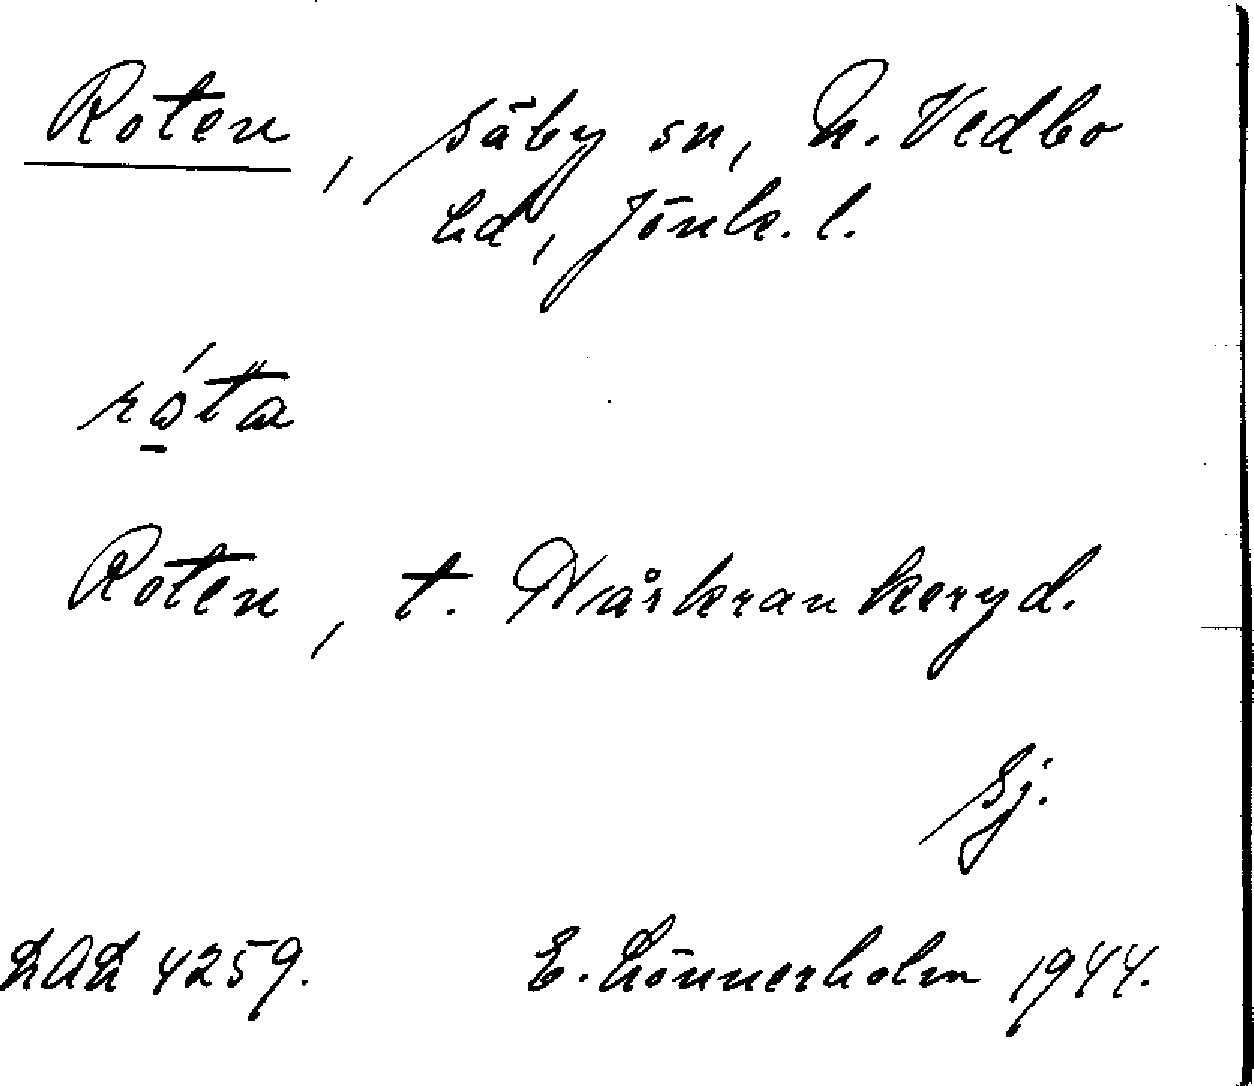 Roten, Säby sn, N. Vedbo
hd, Jönk. l.
róta
Roten, t. Norskrankeryd.
Sj.
LAL 4259. E. Lönnerholm 1944.